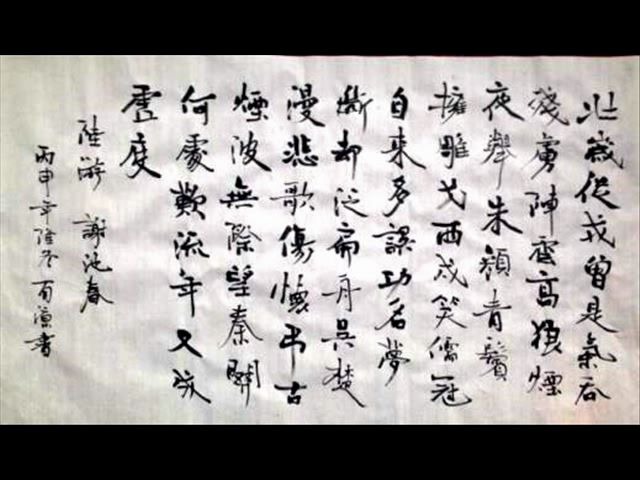 壯歲從戎曾是氣吞
殘虜陣雲高狼煙
夜舉朱顏青鬢
擁雕戈西戍笑儒冠
自來多誤功名夢
斷却泛扁舟吳楚
漫悲歌傷懷弔古
煙波無際望秦關
何處歎流年又成
虛度
陸游 謝池春
丙申年隆冬百源書